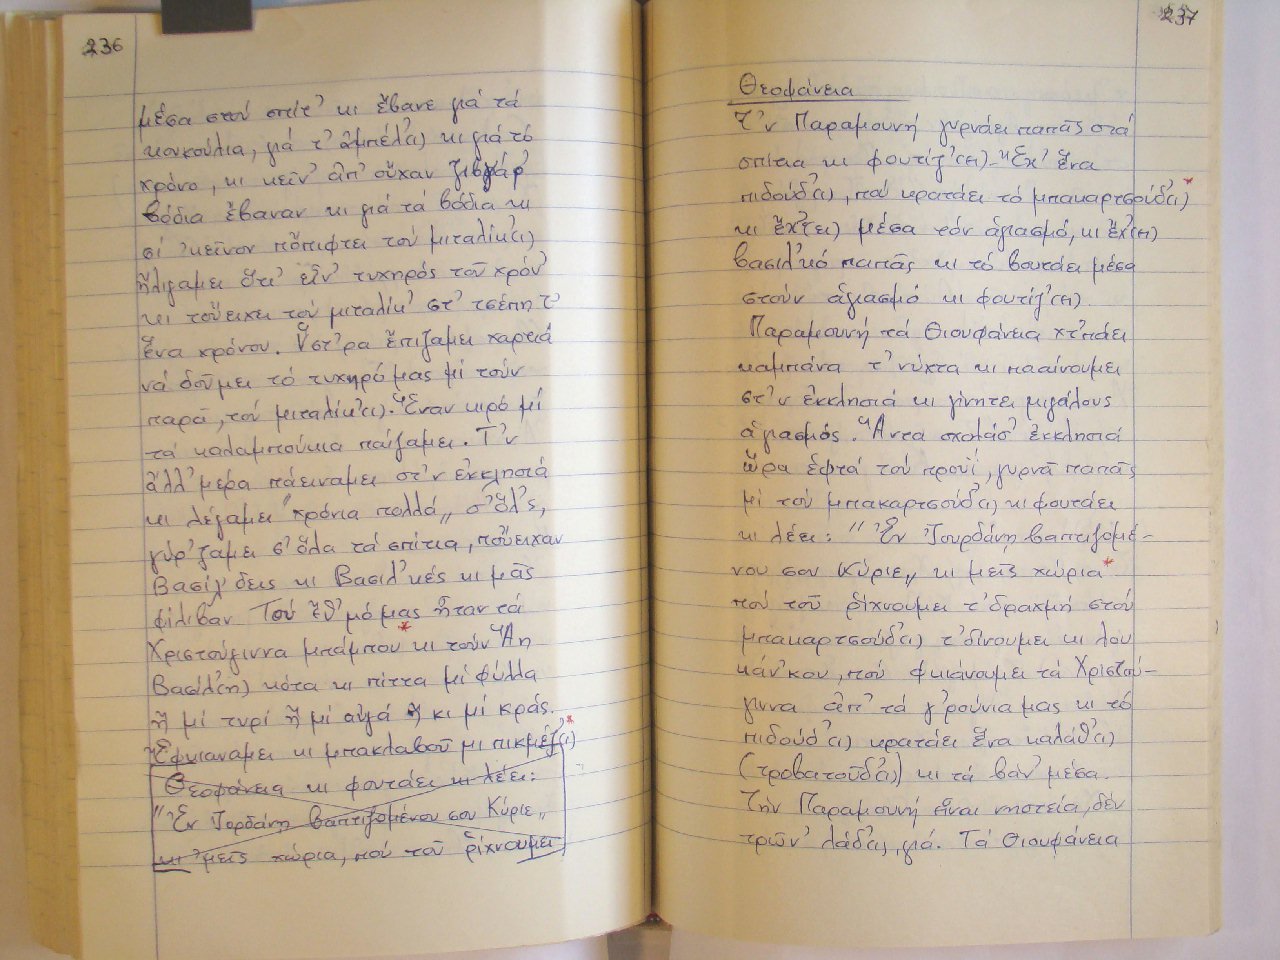 236
μέσα στού σπίτ' κι ἔβανε γιά τά
κουκούλια, γιά τ' ἀμπέλ'(ι) κι γιά τό
χρόνο, κι κεῖν' ἀπ' οὔχαν ζιβγάρ'
βόδια ἔβαναν κι γιά τά βόδια κι
σί 'κεῖνον πὄπιφτει τού μιταλίκ'(ι)
ἤλιγαμει ὅτ' εἶν' τυχηρός τοῦ χρόν'
κι τοὔειχει τού μιταλίκ' στ' τσέπη τ'
ἕνα χρόνου. Ὕστ'ρα ἔπιζαμει χαρτιά
νά δοῦμει τό τυχηρό μας μί τούν
παρᾶ, τού μιταλίκ'(ι). Ἕναν κιρό μί
τά καλαμπούκια παίζαμει. Τ'ν
ἄλλ' μέρα πάειναμει στ'ν ἐκκλησιά
κι λέγαμει "χρόνια πολλά" σ' ὅλ'ς,
γύρ'ζαμει σ' ὅλα τά σπίτια, ποὔειχαν
Βασίλ'δεις κι Βασιλ'κές κι μᾶς
φίλιβαν Τού ἔθ'μό μας ἦταν τά
Χριστούγιννα μπάμπου κι τούν Ἅη
Βασίλ'(η) κότα κι πίττα μί φύλλα
ἤ μί τυρί ἤ μί αὐγά ἤ κι μί κράς.
Ἔφκιαναμει κι μπακλαβοῦ μι πικμέζ'(ι)
Θεοφάνεια κι φουτάει κι λέει:
"Ἐν Ἰορδάνῃ βαπτιζομένου σου Κύριε"
κι 'μεῖς χώρια, πού τοῦ ρίχνουμει
237
Θεοφάνεια
Τ'ν Παραμουνή γυρνάει παπᾶς στά
σπίτια κι φουτίζ'(ει) - Ἔχ' ἕνα
πιδούδ'(ι), πού κρατάει τό μπακαρτσούδ'(ι)
κι ἔχ'(ει) μέσα τόν ἁγιασμό, κι ἔχ'(ει)
βασιλ'κό παπᾶς κι τό βουτάει μέσα
στούν ἁγιασμό κι φουτίζ'(ει).
Παραμουνή τά Θιουφάνεια χτ'πάει
καμπάνα τ' νύχτα κι πααίνουμει
στ'ν ἐκκλησιά κι γίνητει μιγάλους
ἁγιασμός. Ἅντα σκολάσ' ἐκκλησιά
ὥρα ἑφτά τού προυΐ, γυρνᾶ παπᾶς
μί τού μπακαρτσούδ'(ι) κι φουτάει
κι λέει: "Ἐν Ἰουρδάνῃ βαπτιζομέ-
νου σου Κύριε" κι μεῖς χώρια
πού τοῦ ρίχνουμει τ' δραχμή στού
μπακαρτσούδ'(ι) τ' δίνουμει κι λου
κάν'κου, πού φκιάνουμει τά Χριστού-
γιννα ἀπ' τά γ'ρούνια μας κι τό
πιδούδ'(ι) κρατάει ἕνα καλάθ'(ι)
(τροβατούδ'(ι)) κι τά βάν' μέσα.
Τήν Παραμουνή εἶναι νηστεία, δέν
τρῶν' λάδ'(ι), γιά. Τά Θιουφάνεια